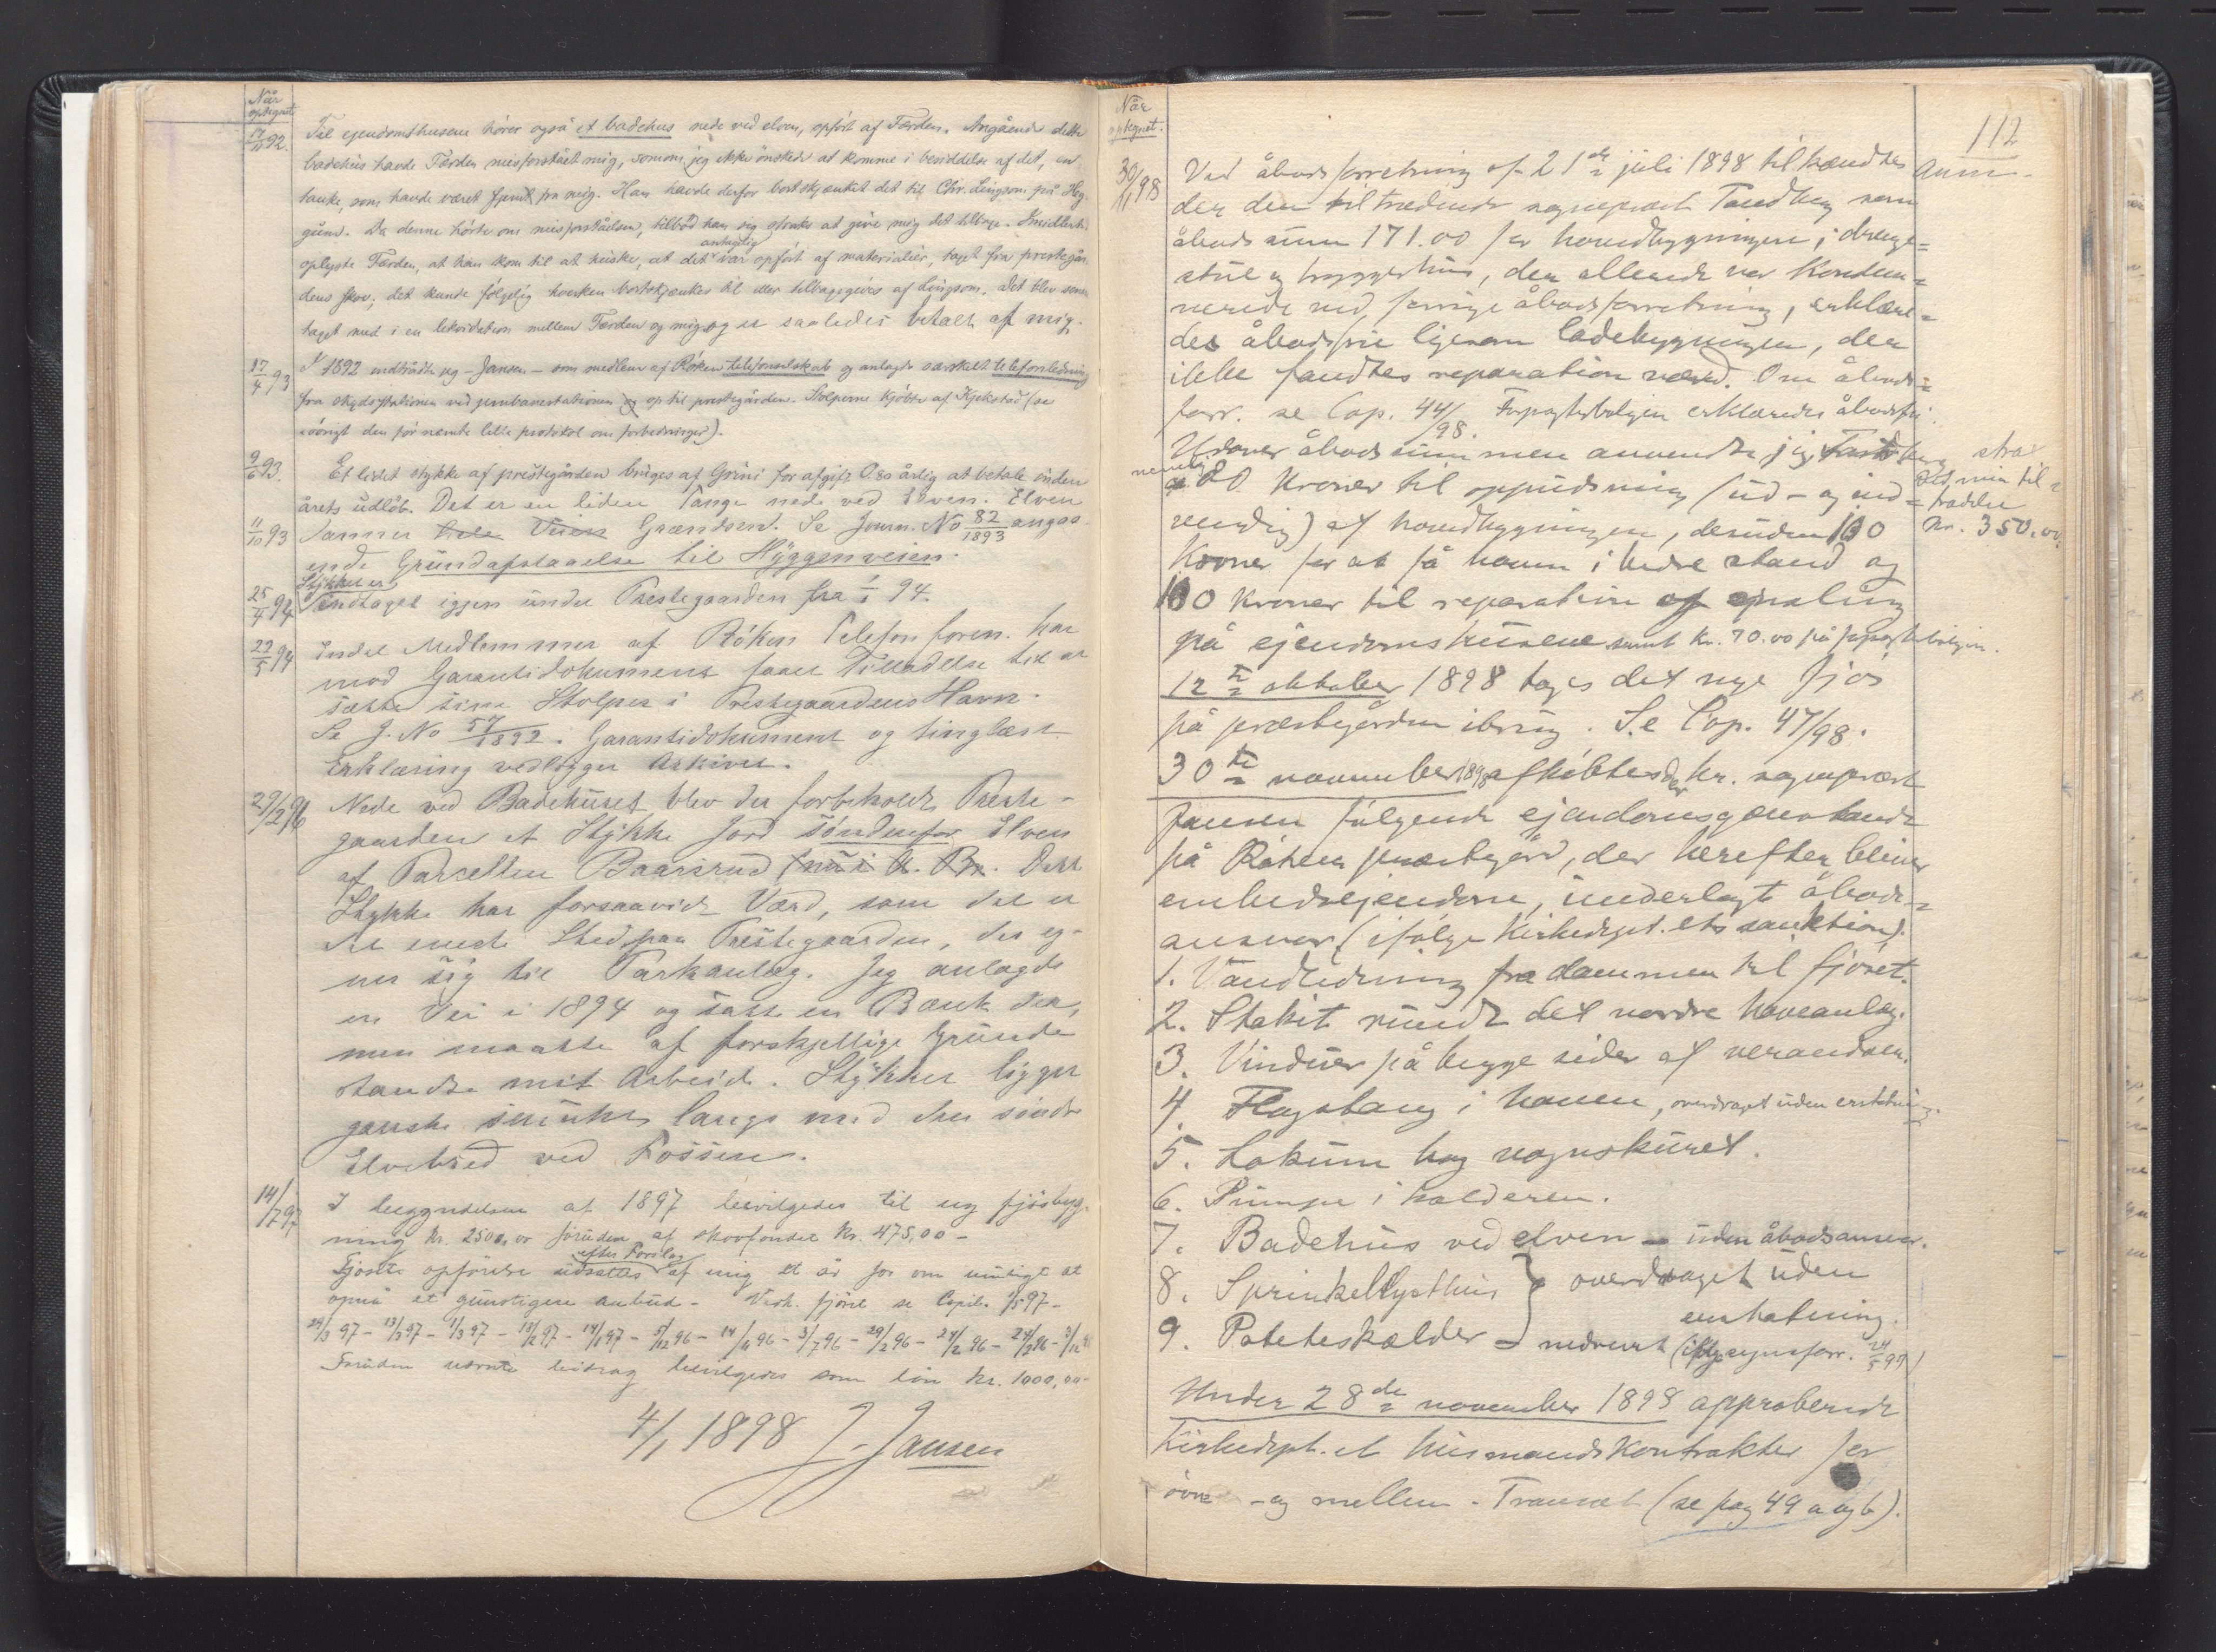 Når
optegnet
17/10 92.
Til ejendomshusene hører også et badehus nede ved elven, opført af Færden. Angående dette
badehus havde Færden misforstået mig, somom jeg ikke ønskede at komme i besiddelse af det, en
tanke, som havde været fjernt fra mig. Han havde derfor bortskjænket det til Chr. Lingsom på Hyg
gum. Da denne hørte om misforståelsen, tilbød han sig straks at give mig det tilbage. Imidlertid
oplyste Færden, at han kom til at huske, at det antagelig var opført af materialier, taget fra prestegår
dens skov; det kunde følgelig hverken bortskjænkes til eller tilbagegives af Lingsom. Det blev senere
taget med i en likvidation mellem Færden og mig og er saaledes betalt af mig.
17/4 93
I 1892 indtrådte jeg - Jansen - som medlem af Røken telefonselskab og anlagde særskilt telefonledning
fra skydsstationen ved jernbanestationen og op til prestegården. Stolperne kjøbte af Kjekstad (se
iøvrigt den før nævnte lille protokol om forbedringer).
9/6 93.
Et lidet stykke af prestegården bruges af Grini for afgift 0.80 årlig at betale inden
årets udløb. Det er en liden Tange nede ved Elven. Elven
11/10 93
danner hele Veien Grændsen. Se Journ. No 82/1893 angaa
ende Grundafstaaelse til Hyggenveien.
25/4 94
Stykket er
indtaget igjen under Prestegaarden fra 1/1 94.
22/5 94
Endel Medlemmer af Røken Telefonforen. har
mod Garantidokument faaet Tilladelse til at
sætte sine Stolper i Prestegaardens Havn.
Se J. No 57/1892. Garantidokument og tinglæst
Erklæring vedlægges Arkivet.
29/2 96
Nede ved Badehuset blev der forbeholdt Preste-
gaarden et Stykke Jord søndenfor Elven
af Parcellen Baarsrud. Dette
Stykke har forsaavidt Værd, som det er
det eneste Sted paa Prestegaarden, der eg-
ner sig til Parkanlæg. Jeg anlagde
en Vei i 1894 og satte en Bænk der,
men maatte af forskjellige Grunde
standse mit Arbeide. Stykket ligger
ganske smukt langs med den søndre
Elvebred ved Fossen.
14/7 97
I begyndelsen af 1897 bevilgedes til ny fjøsbyg-
ning kr. 2500,00 foruden af skovfondet kr. 475,00 -
Fjøsets opførelse udsattes efter Forslag af mig et år for om muligt at
opnå et gunstigere anbud - Vedk. fjøset se Copib. 1/5 97 -
29/3 97 - 13/3 97 - 1/3 97 - 13/2 97 - 14/1 97 - 5/12 96 - 14/11 96 - 3/7 96 - 29/2 96 - 24/2 96 -
Foruden nævnte bidrag bevilgedes som lån kr. 1000,00 -
4/1 1898 J. Jansen
Når
optegnet.
112
Anm.
30/11 98
Ved åbodsforretning af 21de juli 1898 tilkændtes
der den tiltrædende sogneprest Tandberg som
åbodssum 171.00 for hovedbygningen; drenge=
stue og bryggerhus, der allerede var kondem=
nerede ved forrige åbodsforretning, erklære=
des åbodsfrie ligesom ladebygningen, der
ikke fandtes reparation værd. Om åbods=
forr. se Cop. 44/98. Forpagterboligen erklæredes åbodsfri.
Udover åbodssummen anvendte jeg
strax
ved min til=
trædelse
kr. 350.00
nemlig
Kroner til oppudsning (ud- og ind=
vendig) af hovedbygningen, desuden 100
Kroner for at få haven i bedre stand og
100 kroner til reparation og maling
på ejendomshusene samt kr. 70.00 på forpagterboligen.
12te oktober 1898 toges det nye fjøs
på præstegården ibrug. Se Cop. 47/98.
30te november 1898 afkjøbtes der hr. sogneprest
Jansen følgende ejendomsgjenstande
på Røken præstegård, der herefter bliver
embedsejendom, underlagt åbods=
ansvar (ifølge Kirkedept.ets sanktion).
1. Vandledning fra dammen til fjøset.
2. Stakit rundt det nordre haveanlæg.
3. Vinduer på begge sider af verandaen.
4. Flagstang i haven, overdraget uden erstatning.
5. Lokum bag vognskuret.
6. Pumpe i kælderen.
7. Badehus ved elven - uden åbodsansvar.
8. Sprinkellysthus } overdraget uden
erstatning.
9. Poteteskælder - nedrevet (ifølge synsforr. 24/5 99)
Under 28de november 1898 approberede
Kirkedept.et husmandskontrakter for
øvre - og mellem - Transæt (se pag 49 a og b).